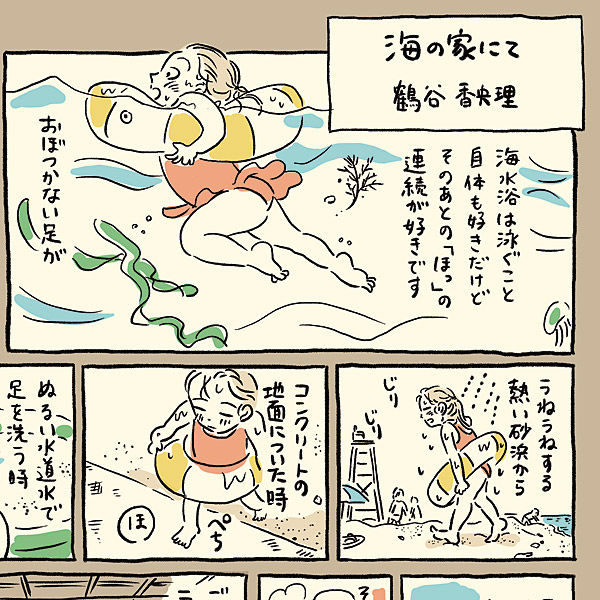 海の家にて
鶴谷 香央理
海水浴は泳ぐこと
自体も好きだけど
そのあとの「ほっ」の
連続が好きです
おぼつかない足が
うねうねする
熱い砂浜から
じり
じり
コンクリートの
地面についた時
ぺち
ほ
ぬるい水道水で
足を洗う時